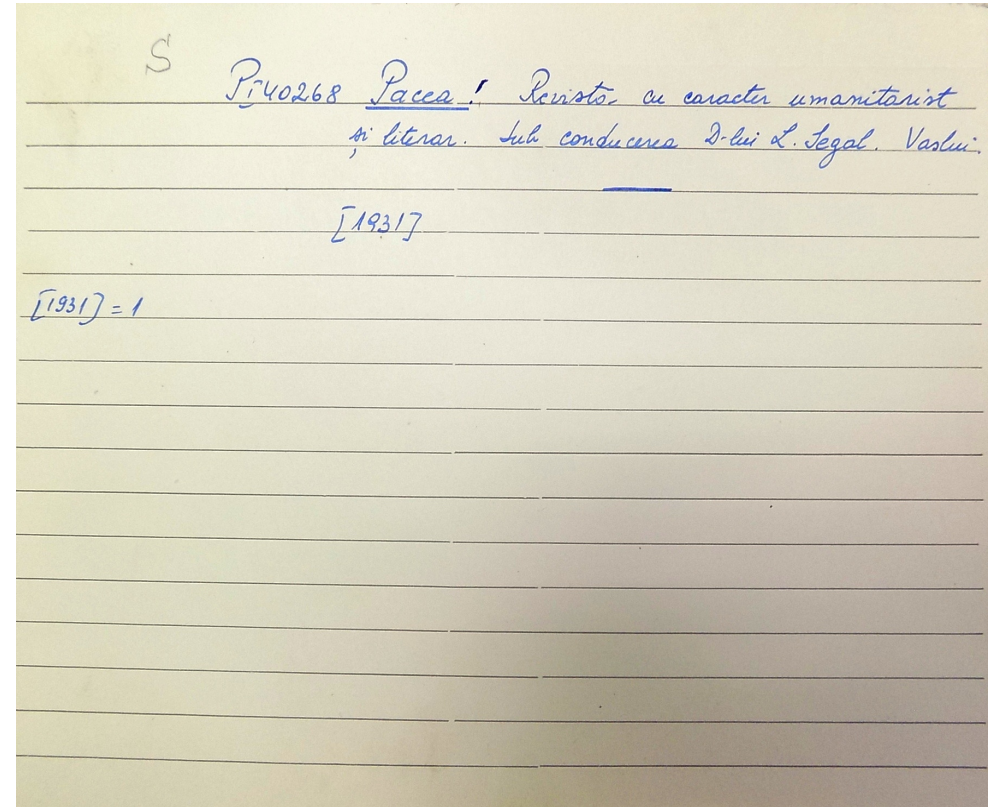 S
PI40268 Pacea! Revista cu caracter umanitarist
și literar. Sub conducerea D-lui L. Segal. Vaslui.
[1931]
[1931] = 1